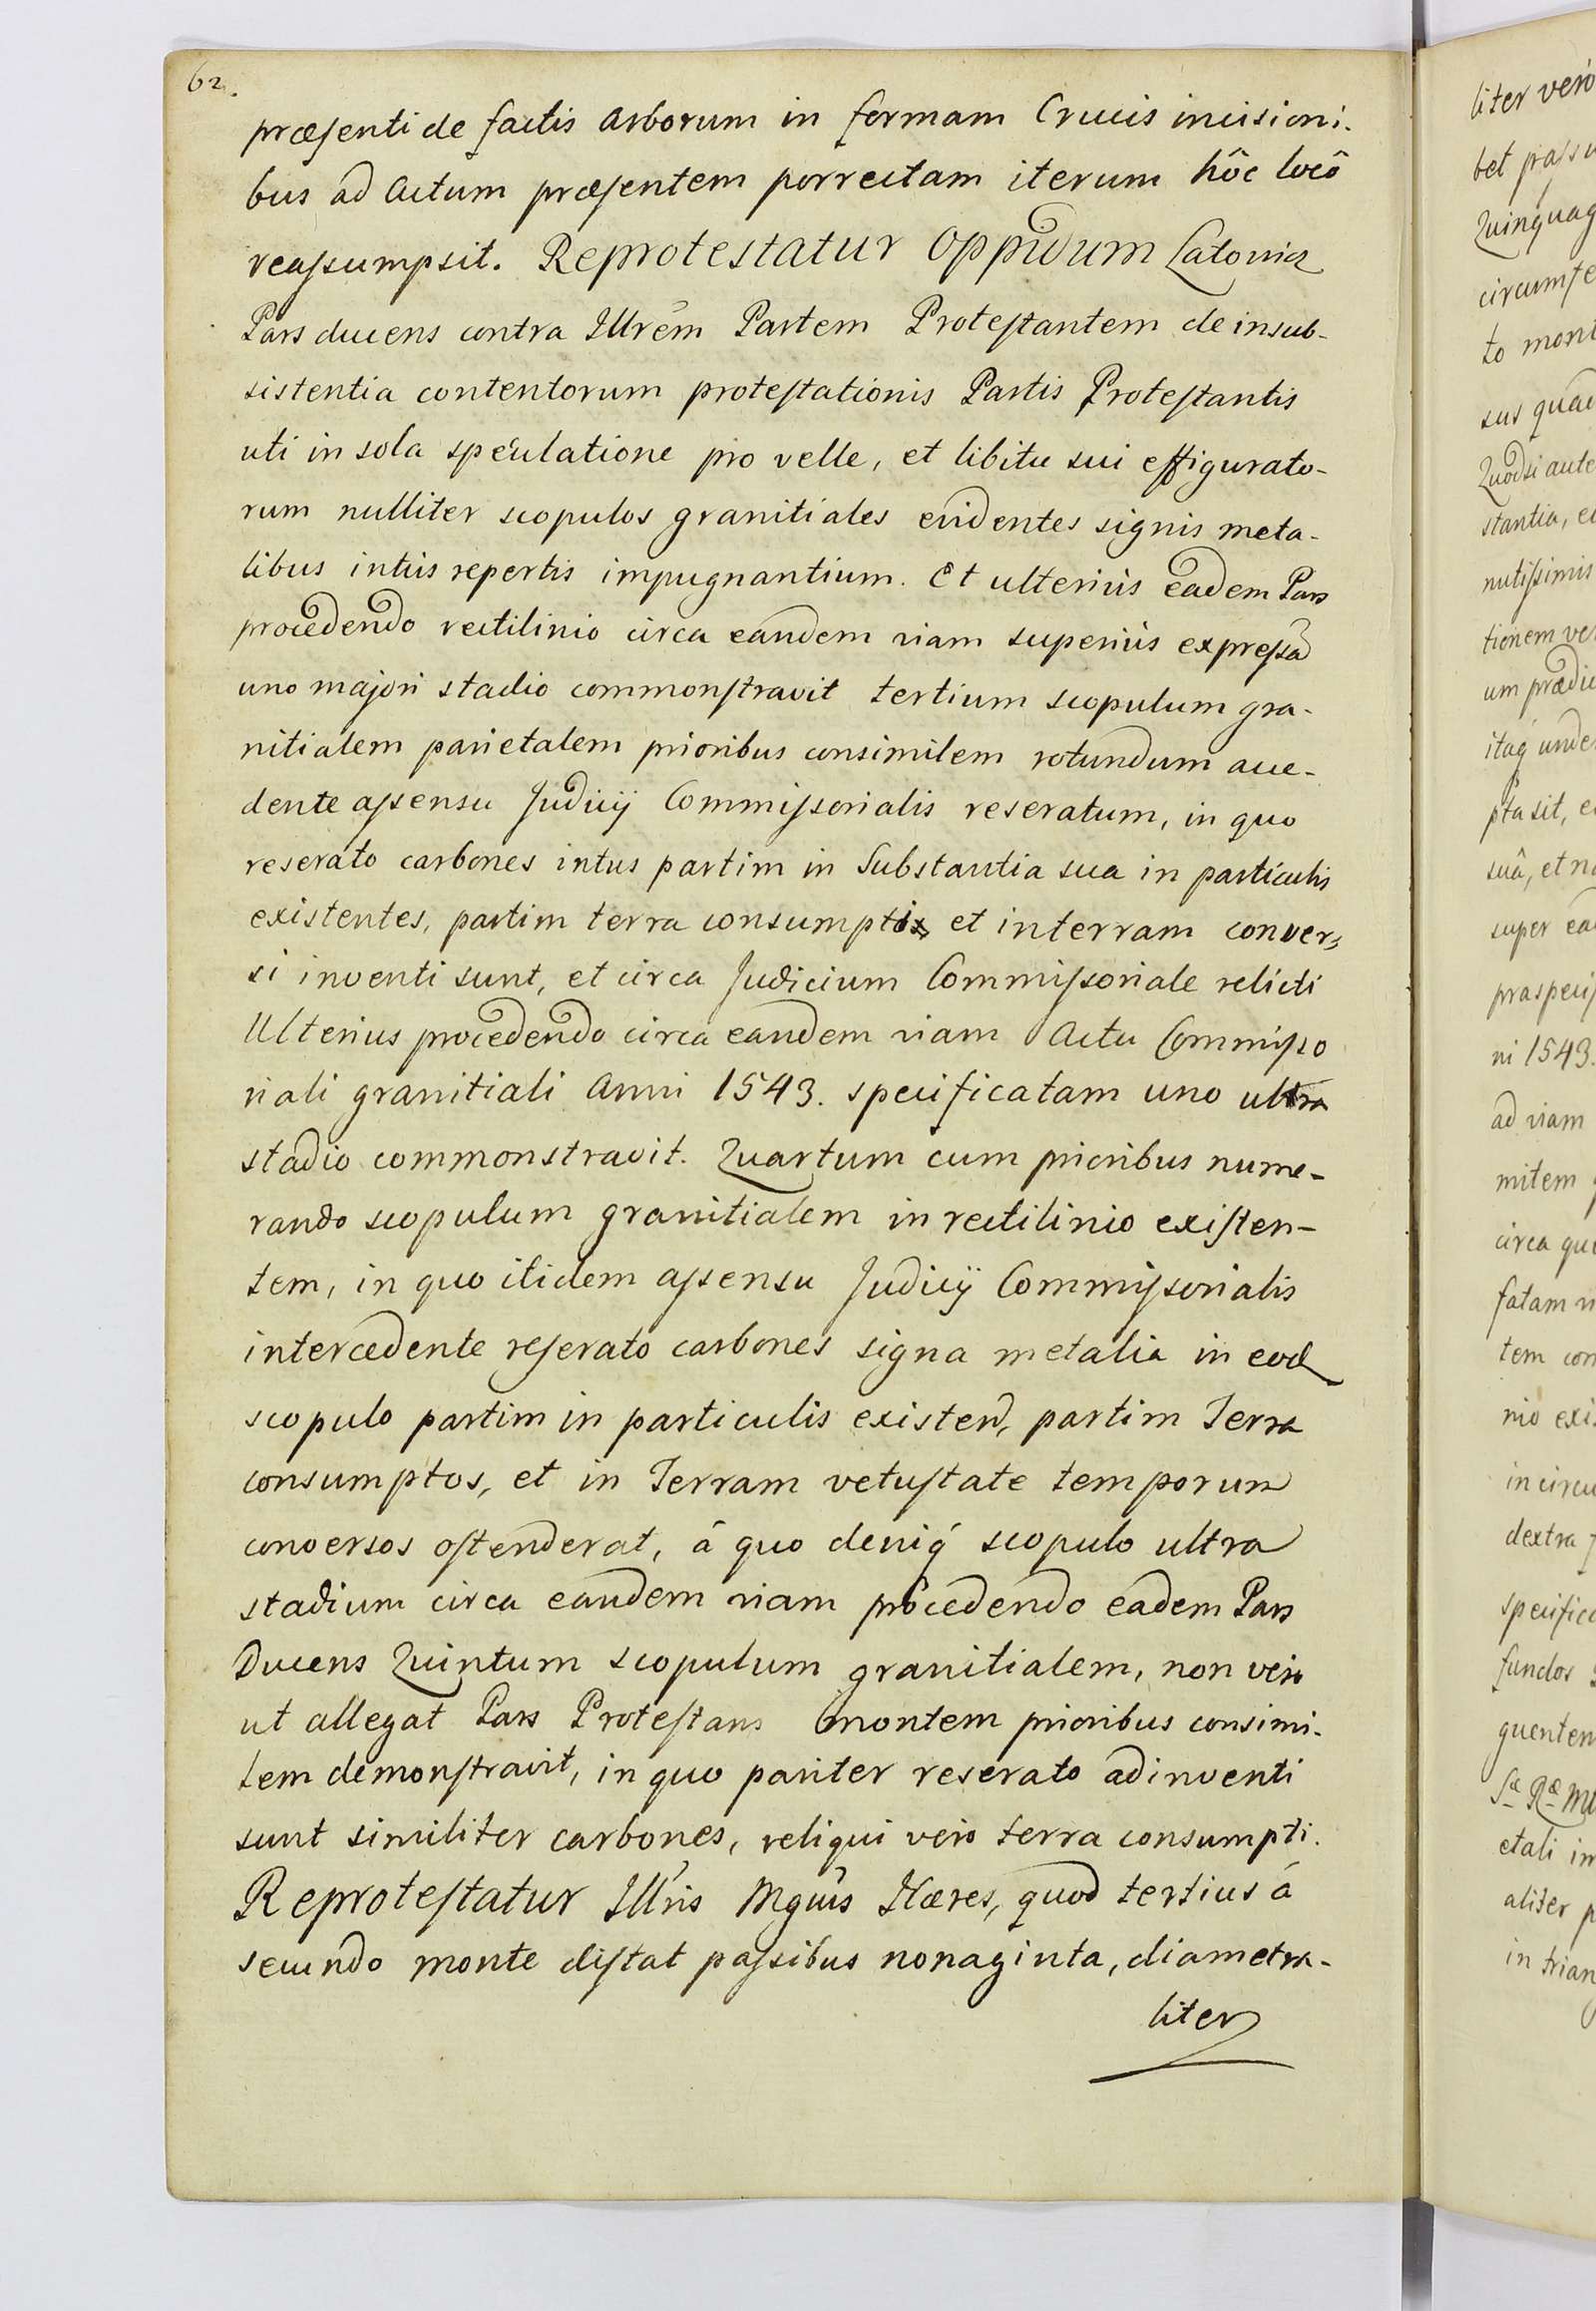 62.
præsenti de factis Arborum in formam Crucis incisioni-
bus ad Actum præsentem porrectam iterum hôc locô
reassumpsit. Reprotestatur Oppidum Latonia
Pars ducens contra Illrem Partem Protestantem de insub-
sistentia contentorum protestationis Partis Protestantis
uti in sola speculatione pro velle, et libitu sui effigurato-
rum nulliter scopulos granitiales evidentes signis meta-
libus intús repertis impugnantium. Et ulteriús eadem Pars
procedendo rectilinio circa eandem viam superiús expressã
uno majori stadio commonstravit tertium scopulum gra-
nitialem parietalem prioribus consimilem rotundum acce-
dente assensu Judicij Commissorialis reseratum, in quo
reserato carbones intus partim in Substantia sua in particulis
existentes, partim terra consumpti et in terram conver-
si inventi sunt, et circa Judicium Commissoriale relicti
Ulterius procedendo circa eandem viam Actu Commisso
riali granitiali Anni 1543. specificatam uno ultra
stadio commonstravit. Quartum cum prioribus nume-
rando scopulum granitialem in rectilinio existen-
tem, in quo itidem assensu Judicij Commissorialis
intercedente reserato carbones signa metalia in eod
scopulo partim in particulis existen, partim Terra
consumptos, et in Terram vetustate temporum
conversos ostenderat, á quo deniq́ scopulo ultra
stadium circa eandem viam procedendo eadem Pars
Ducens Quintum scopulum granitialem, non vero
ut allegat Pars Protestans montem prioribus consimi-
lem demonstravit, in quo pariter reserato adinventi
sunt similiter carbones, reliqui vero terra consumpti.
Reprotestatur Illris Mgcus Hæres, quod tertius á
secundo monte distat passibus nonaginta, diametra-
liter
liter vero
bet passu
Quinquag
circumfe
to mont
sus qua
Quodsi aute
stantia, e
nutissimis
tionem ve
um prædi
itaq́ unde
pta sit, e
suâ, et n
super ea
ni 1543.
ad viam
mitem
circa qu
fatam
tem con
nio exi
in circu
dextra
specific
fundos
guentem
etali in
aliter p
in trian